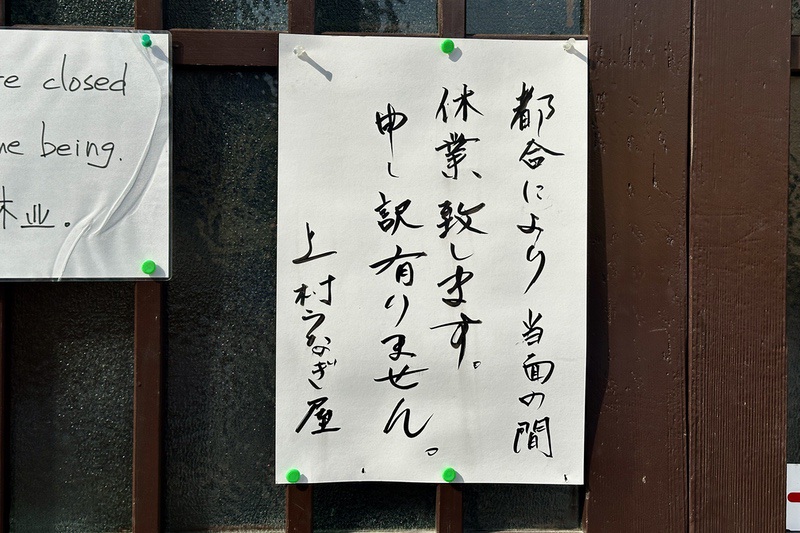 都合により当面の間
休業致します。
申し訳有りません。
上村うなぎ屋
closed
being.
休业.